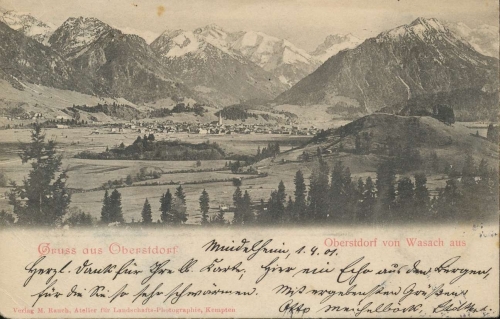 Gruss aus Oberstdorf
Oberstdorf von Wasach aus
Mindelheim, 1.4.01.
Herzl. Dank für Ihre lb. Karte, hier ein Echo aus den Bergen,
für die Sie so sehr schwärmen. Mit ergebensten Grüßen
Otto
Verlag M. Rauch, Atelier für Landschafts-Photographie, Kempten